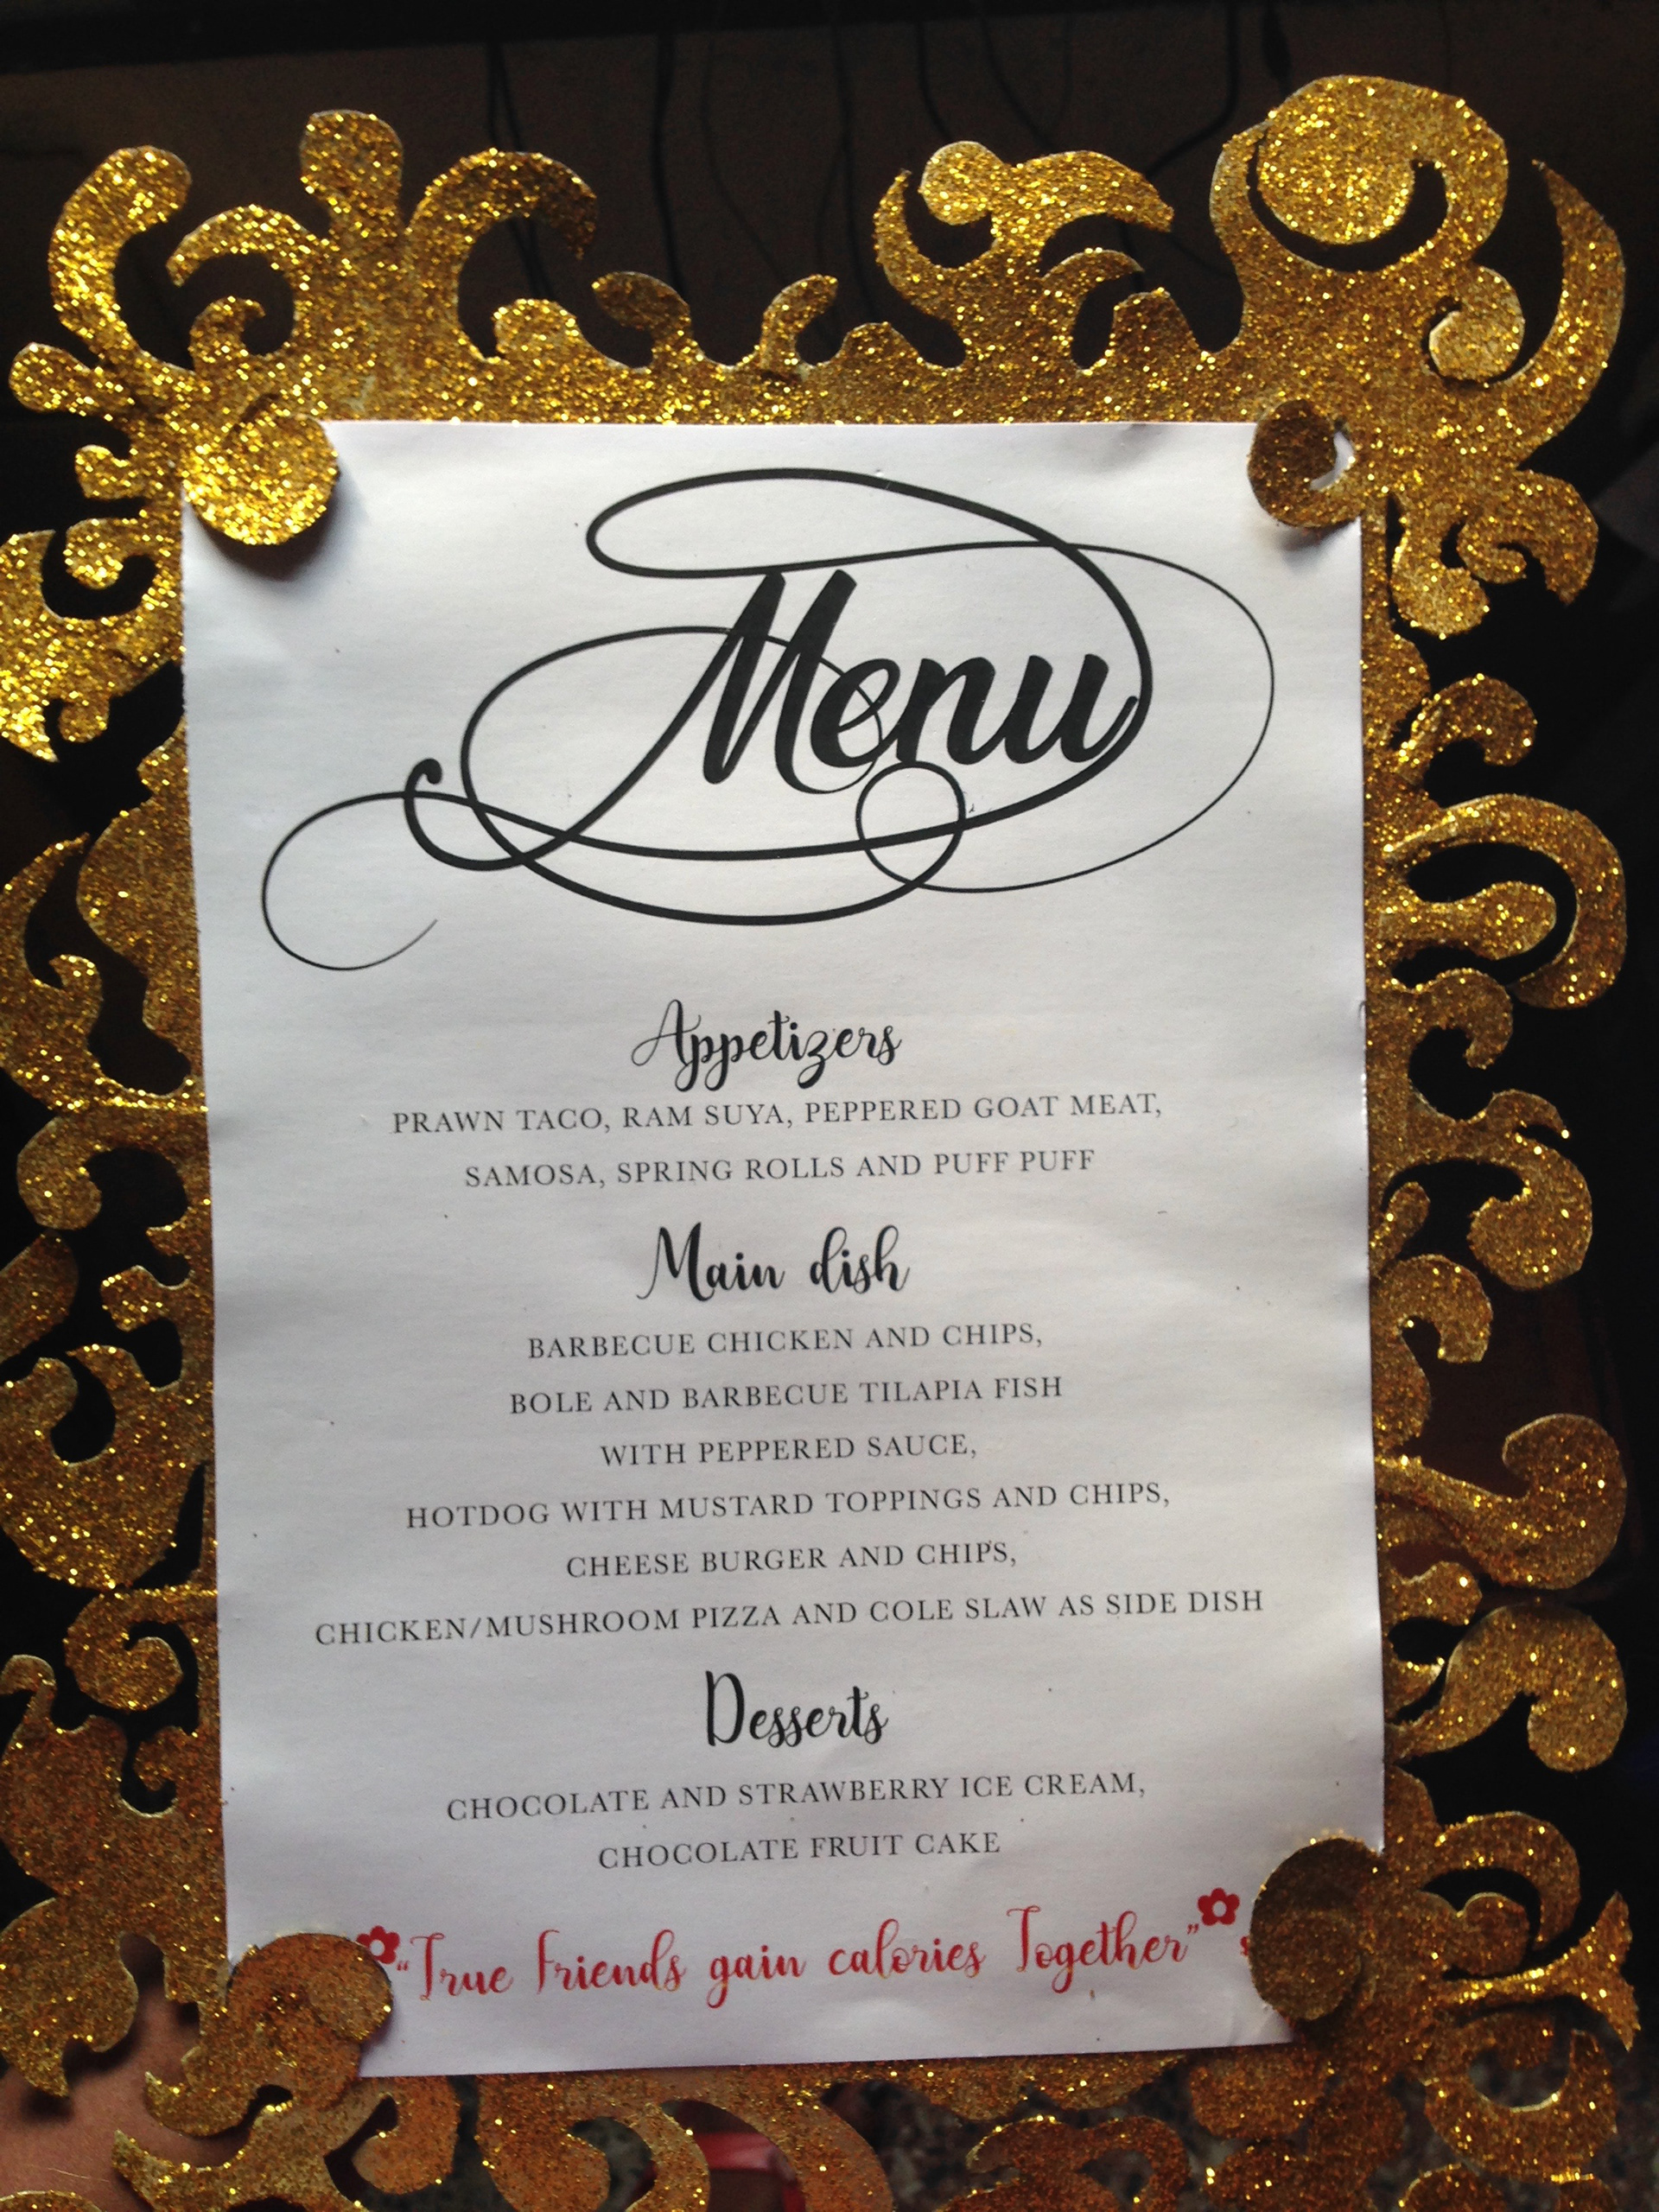 Menu
Appetizers
PRAWN TACO, RAM SUYA, PEPPERED GOAT MEAT,
SAMOSA, SPRING ROLLS AND PUFF PUFF
Main dish
BARBECUE CHICKEN AND CHIPS,
BOLE AND BARBECUE TILAPIA FISH
WITH PEPPERED SAUCE,
HOTDOG WITH MUSTARD TOPPINGS AND CHIPS,
CHEESE BURGER AND CHIPS,
CHICKEN/MUSHROOM PIZZA AND COLE SLAW AS SIDE DISH
Desserts
CHOCOLATE AND STRAWBERRY ICE CREAM,
CHOCOLATE FRUIT CAKE
“True Friends gain calories Together”